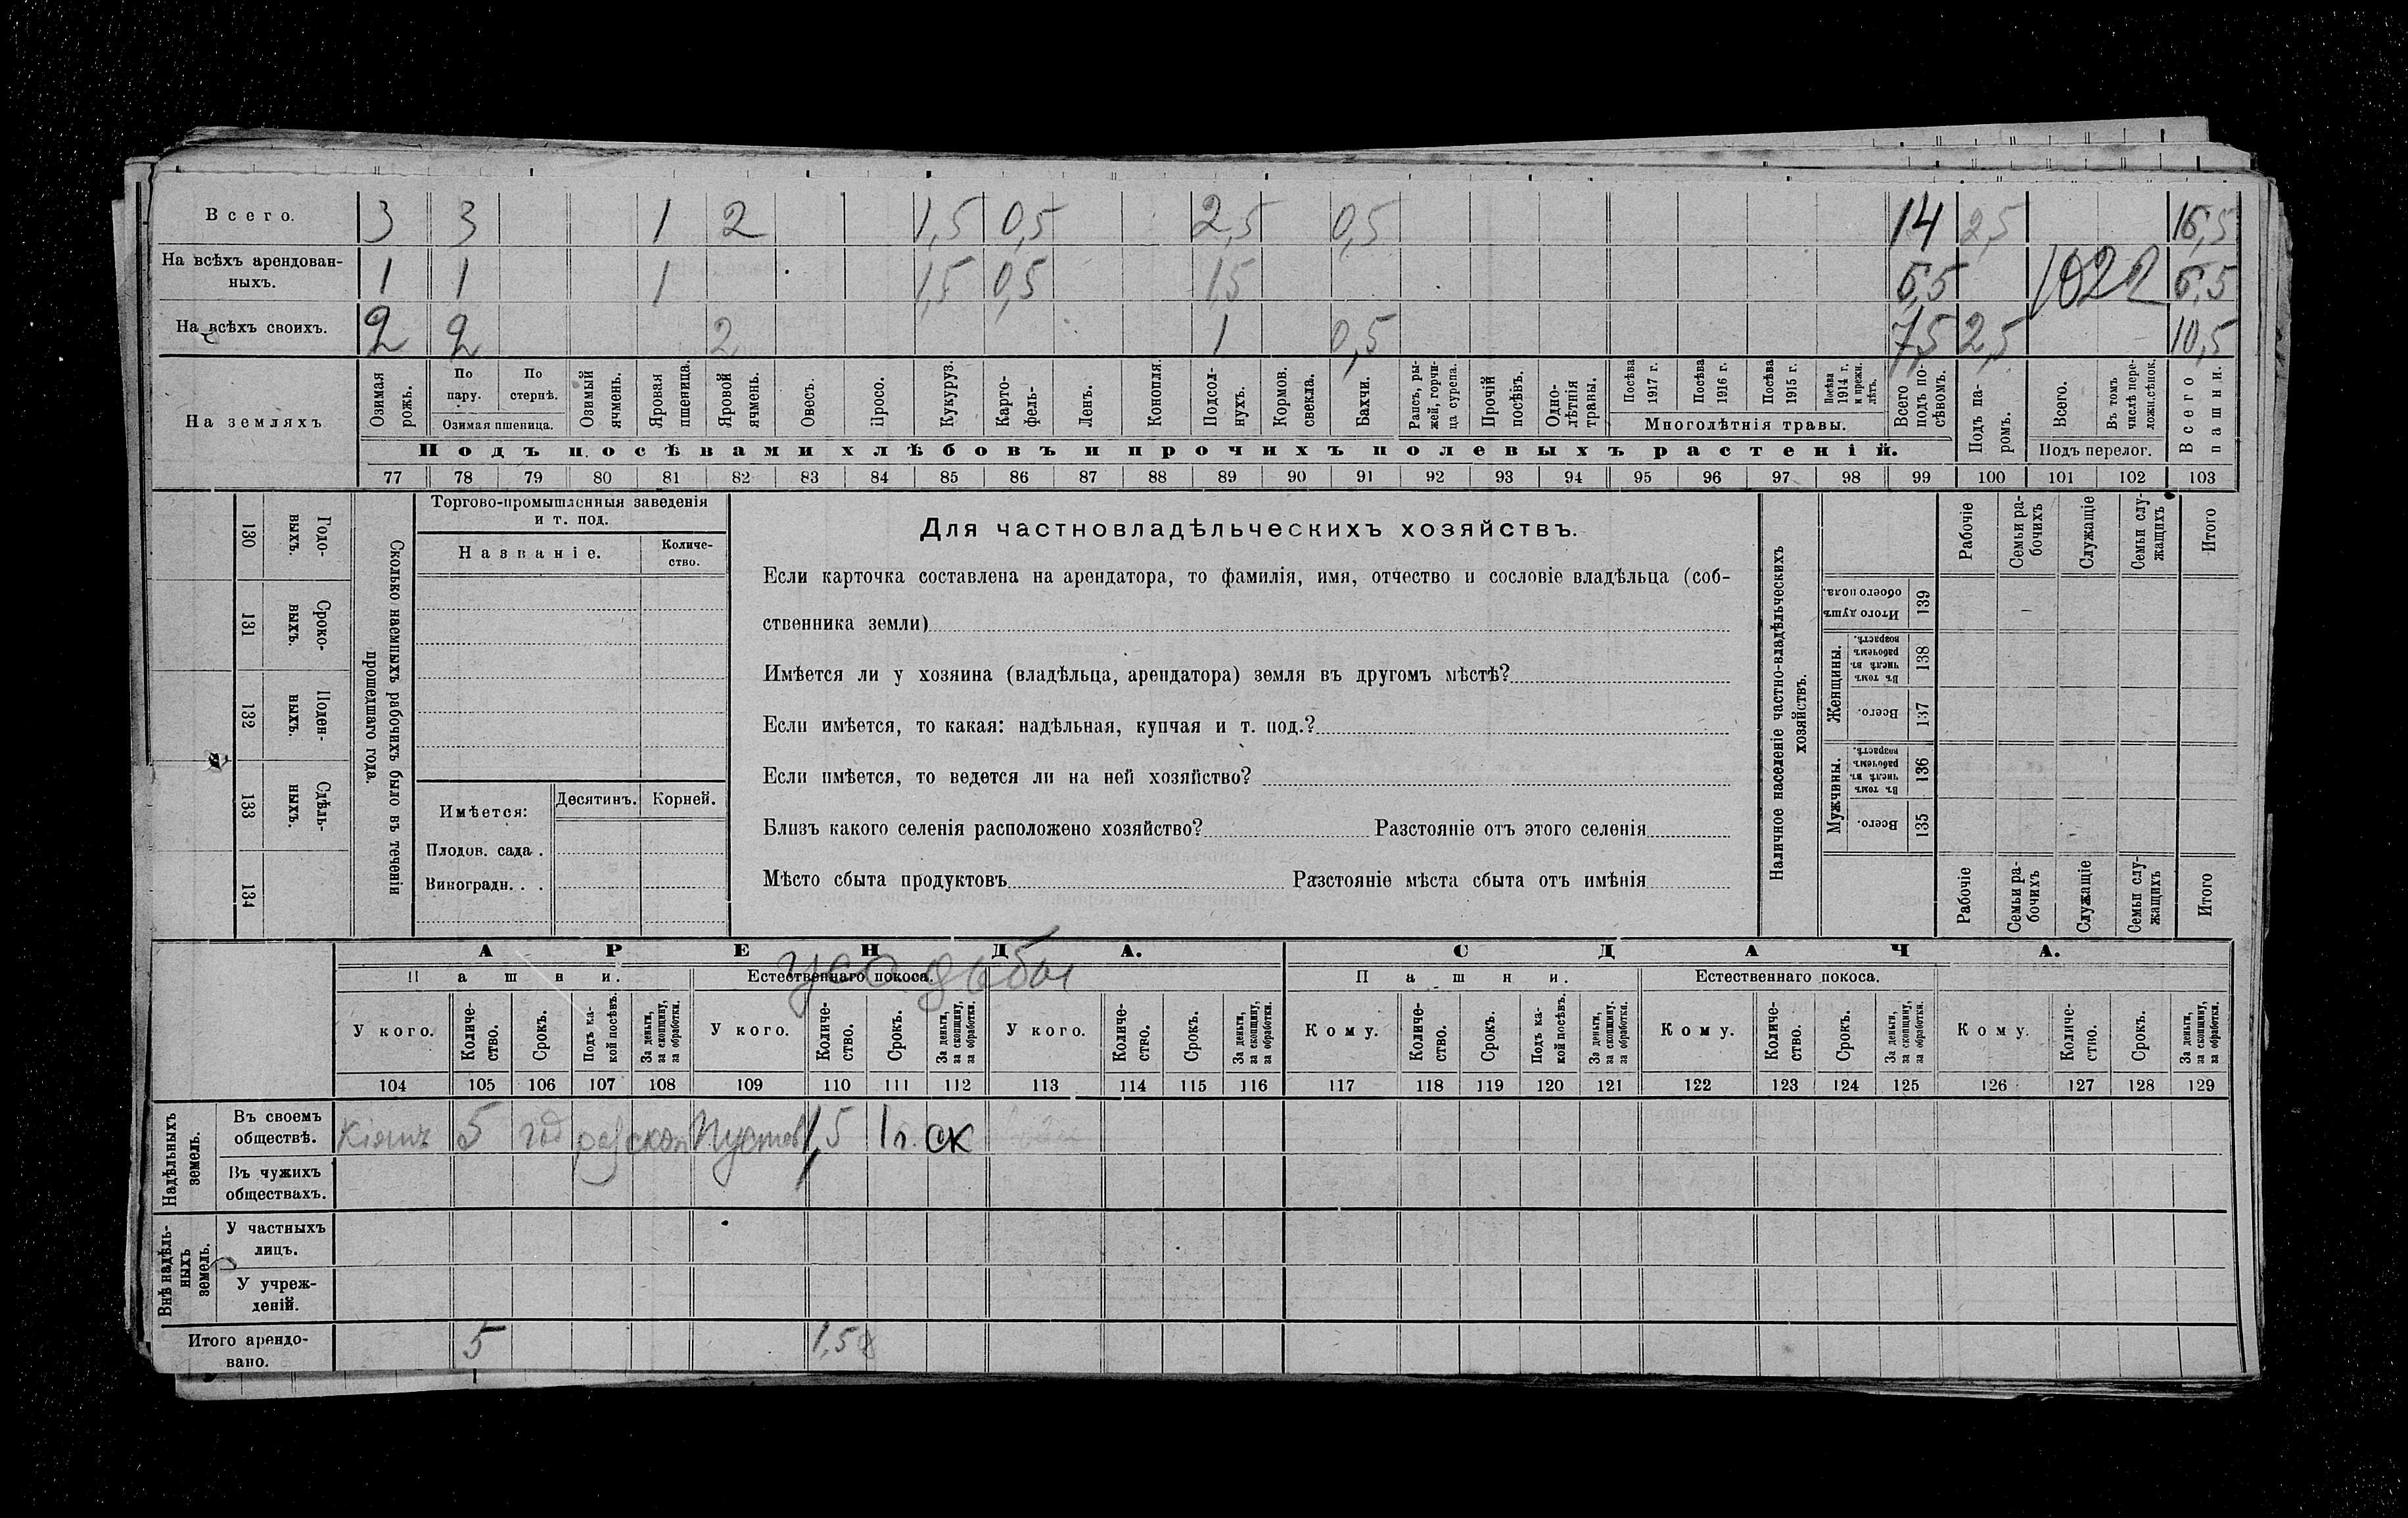 Всего. 3 3 1 2 1,5 0,5 2,5 0,5 14 2,5 16,5
На всѣхъ арендован-
ныхъ. 1 1 1 1,5 0,5 1,5 6,5 1022 6,5
На всѣхъ своихъ. 2 2 2 1 0,5 7,5 2,5 10,5
На земляхъ
Озимая рожь.
По пару.
По стернѣ.
Озимая пшеница.
Озимый ячмень.
Яровая пшеница.
Яровой ячмень.
Овесъ.
Просо.
Кукуруз.
Карто-
фель.
Ленъ.
Конопля.
Подсол-
нухъ.
Кормов. свекла.
Бахчи.
Рапсъ, ры-
жей, горчи-
ца сурепа.
Прочій посѣвъ.
Одно-
лѣтнія травы.
Посѣва 1917 г.
Посѣва 1916 г.
Посѣва 1915 г.
Посѣва 1914 г. и прежн. лѣтъ.
Многолѣтнія травы.
Всего подъ по-
сѣвомъ.
Подъ па-
ромъ.
Всего.
Въ томъ числѣ пере-
ложн.сѣнок.
Подъ перелог.
Всего пашни.
Подъ посѣвами хлѣбовъ и прочихъ полевыхъ растеній.
77 78 79 80 81 82 83 84 85 86 87 88 89 90 91 92 93 94 95 96 97 98 99 100 101 102 103
130 Годо-
выхъ.
131 Сроко-
выхъ.
132 Поден-
ныхъ.
133 Сдѣль-
ныхъ.
134
Сколько наемныхъ рабочихъ было въ теченіи
прошедшаго года.
Торгово-промышленныя заведенія
и т. под.
Названіе.
Количе-
ство.
Имѣется:
Десятинъ. Корней.
Плодов. сада .
Виноградн. . .
Для частновладѣльческихъ хозяйствъ.
Если карточка составлена на арендатора, то фамилія, имя, отчество и сословіе владѣльца (соб-
ственника земли)
Имѣется ли у хозяина (владѣльца, арендатора) земля въ другомъ мѣстѣ?
Если имѣется, то какая: надѣльная, купчая и т. под.?
Если имѣется, то ведется ли на ней хозяйство?
Близъ какого селенія расположено хозяйство? Разстояніе отъ этого селенія
Мѣсто сбыта продуктовъ Разстояніе мѣста сбыта отъ имѣнія
Наличное населеніе частно-владѣльческихъ
хозяйствъ.
Рабочіе
Семьи ра-
бочихъ
Служащіе
Семьи слу-
жащихъ
Итого
Итого душъ обоего пола. 139
Женщины.
Въ томъ числѣ въ рабочемъ возрастѣ. 138
Всего. 137
Мужчины.
Въ томъ числѣ въ рабочемъ возрастѣ. 136
Всего. 135
Рабочіе
Семьи ра-
бочихъ
Служащіе
Семьи слу-
жащихъ
Итого
АРЕНДА.
СДАЧА.
Пашни.
Естественнаго покоса.
усадьбы
Пашни.
Естественнаго покоса.
У кого.
Количе-
ство.
Срокъ.
Подъ ка-
кой посѣвъ.
За деньги, за скопщину, за обработки.
У кого.
Количе-
ство.
Срокъ.
За деньги, за скопщину, за обработки.
У кого.
Количе-
ство.
Срокъ.
За деньги, за скопщину, за обработки.
Кому.
Количе-
ство.
Срокъ.
Подъ ка-
кой посѣвъ.
За деньги, за скопщину, за обработки.
Кому.
Количе-
ство.
Срокъ.
За деньги, за скопщину, за обработки.
Кому.
Количе-
ство.
Срокъ.
За деньги, за скопщину, за обработки.
104 105 106 107 108 109 110 111 112 113 114 115 116 117 118 119 120 121 122 123 124 125 126 127 128 129
Надѣльныхъ
земель.
Въ своемъ
обществѣ. 5 год скоп 1,5 1 г. ск
Въ чужихъ
обществахъ.
Внѣ надѣль-
ныхъ
земель.
У частныхъ
лицъ.
У учреж-
деній.
Итого арендо-
вано. 5 1,5